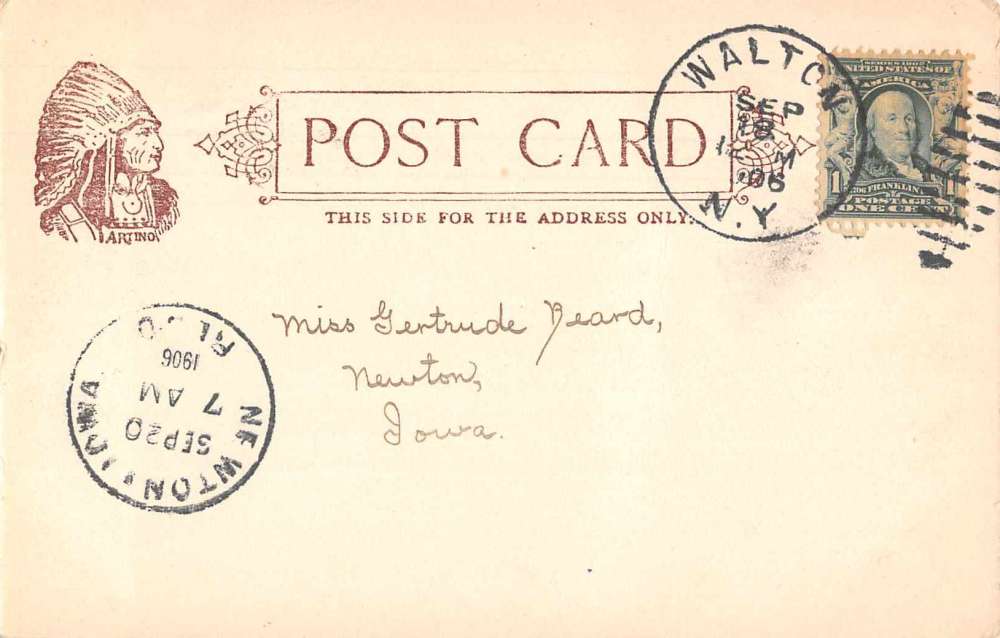 WALTON
SEP
18
12 M
'06
N.Y.
SERIES 1902
UNITED STATES OF
AMERICA
1 FRANKLIN 1
POSTAGE
ONE CENT
POST CARD
THIS SIDE FOR THE ADDRESS ONLY.
ARTINO
Miss Gertrude Beard,
Newton,
Iowa.
NEWTON, IOWA
SEP 20
7 AM
1906
REC'D